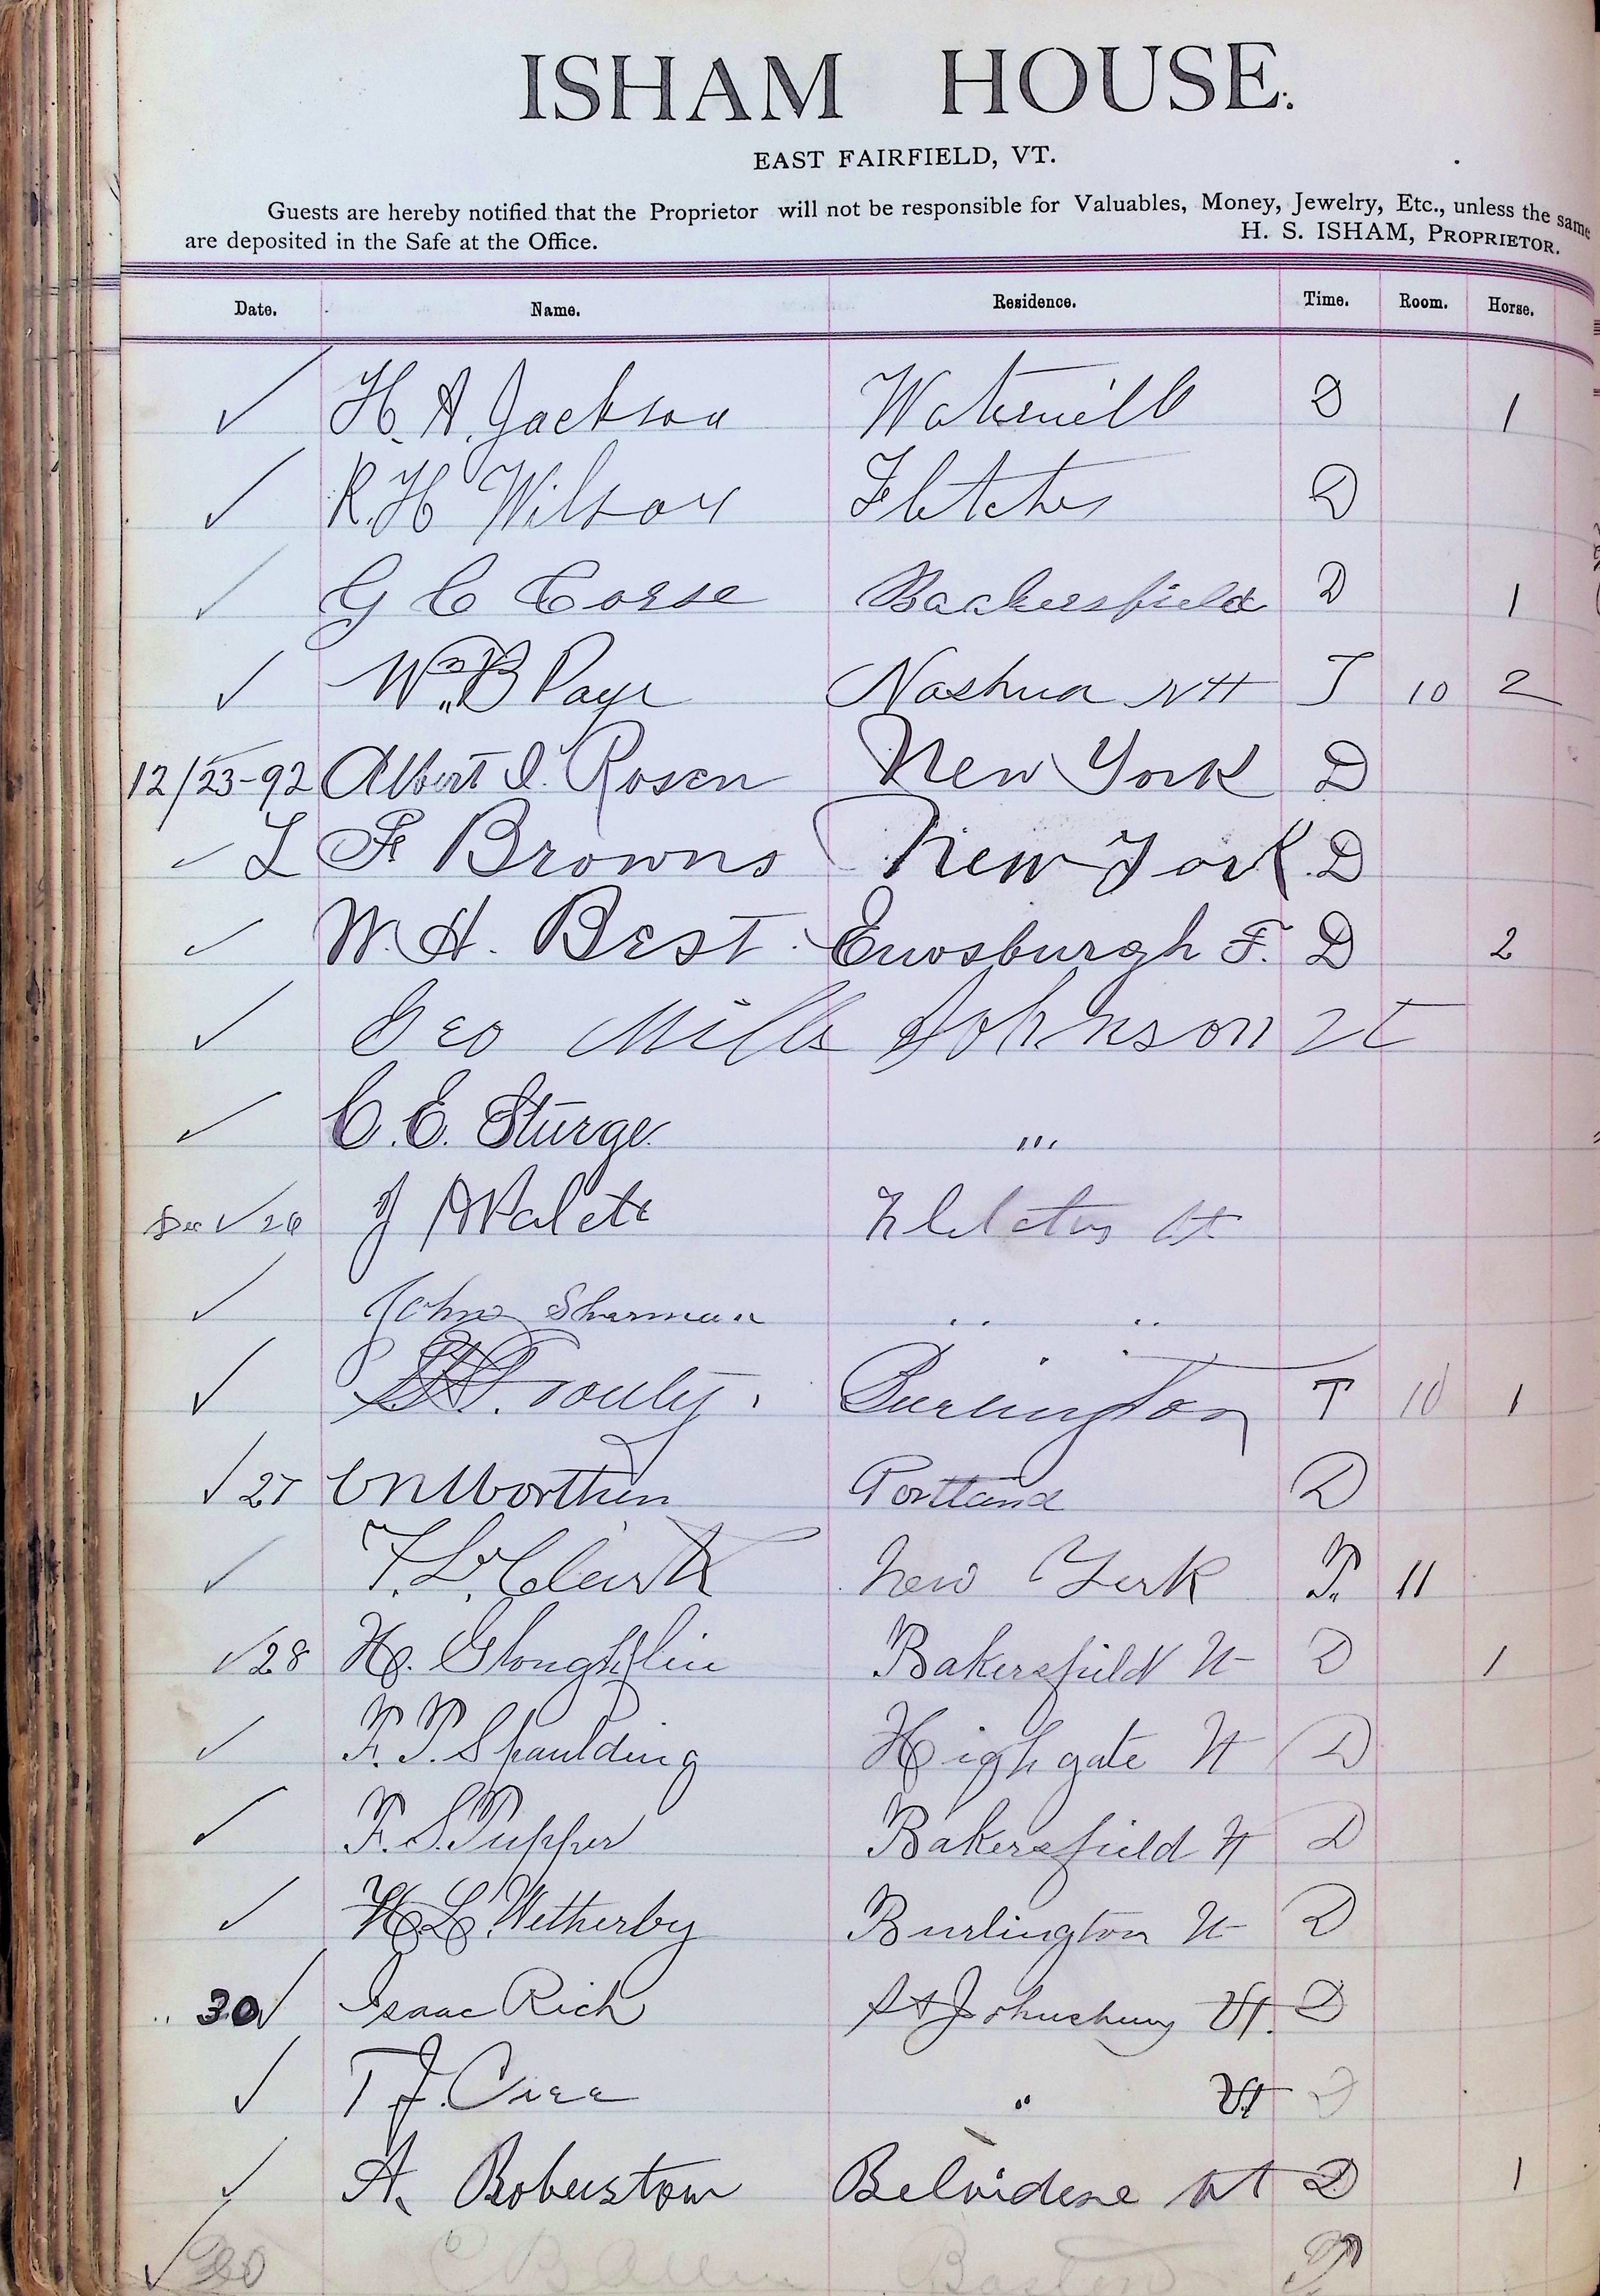 ISHAM HOUSE.
EAST FAIRFIELD, VT.
Guests are hereby notified that the Proprietor will not be responsible for Valuables, Money, Jewelry, Etc., unless the same
are deposited in the Safe at the Office. H. S. ISHAM, PROPRIETOR.
Date. Name. Residence. Time. Room. Horse.
✓ H. A. Jackson Waterville D 1
✓ R. H Wilson Fletcher D
✓ G C Corse Backersfield D 1
✓ Wm B Page Nashua NH T 10 2
12/23-92 Albert I. Rosen New York D
✓ L F Browns New York. D
✓ W. H. Best. Enosburgh F. D 2
✓ Geo Mills Johnson Vt
✓ C. E. Sturge "'
Dec ✓ 26 J Fletcher Vt
✓ John Sherman .. ..
✓ Prouty. Burlington T 10 1
✓ 27 Worthen Portland D
✓ F. L. Clark New York T. 11
✓ 28 H. Bakersfield Vt D 1
✓ F. T. Spaulding Highgate Vt D
✓ F. S. Tupper Bakersfield Vt D
✓ H. L. Wetherby Burlington Vt D
.. 30 ✓ Isaac Rich St Johnsbury Vt. D
✓ T J. " Vt D
✓ A. Roberstom Belvidere Vt D 1
✓ 30 C B Allen Boston T